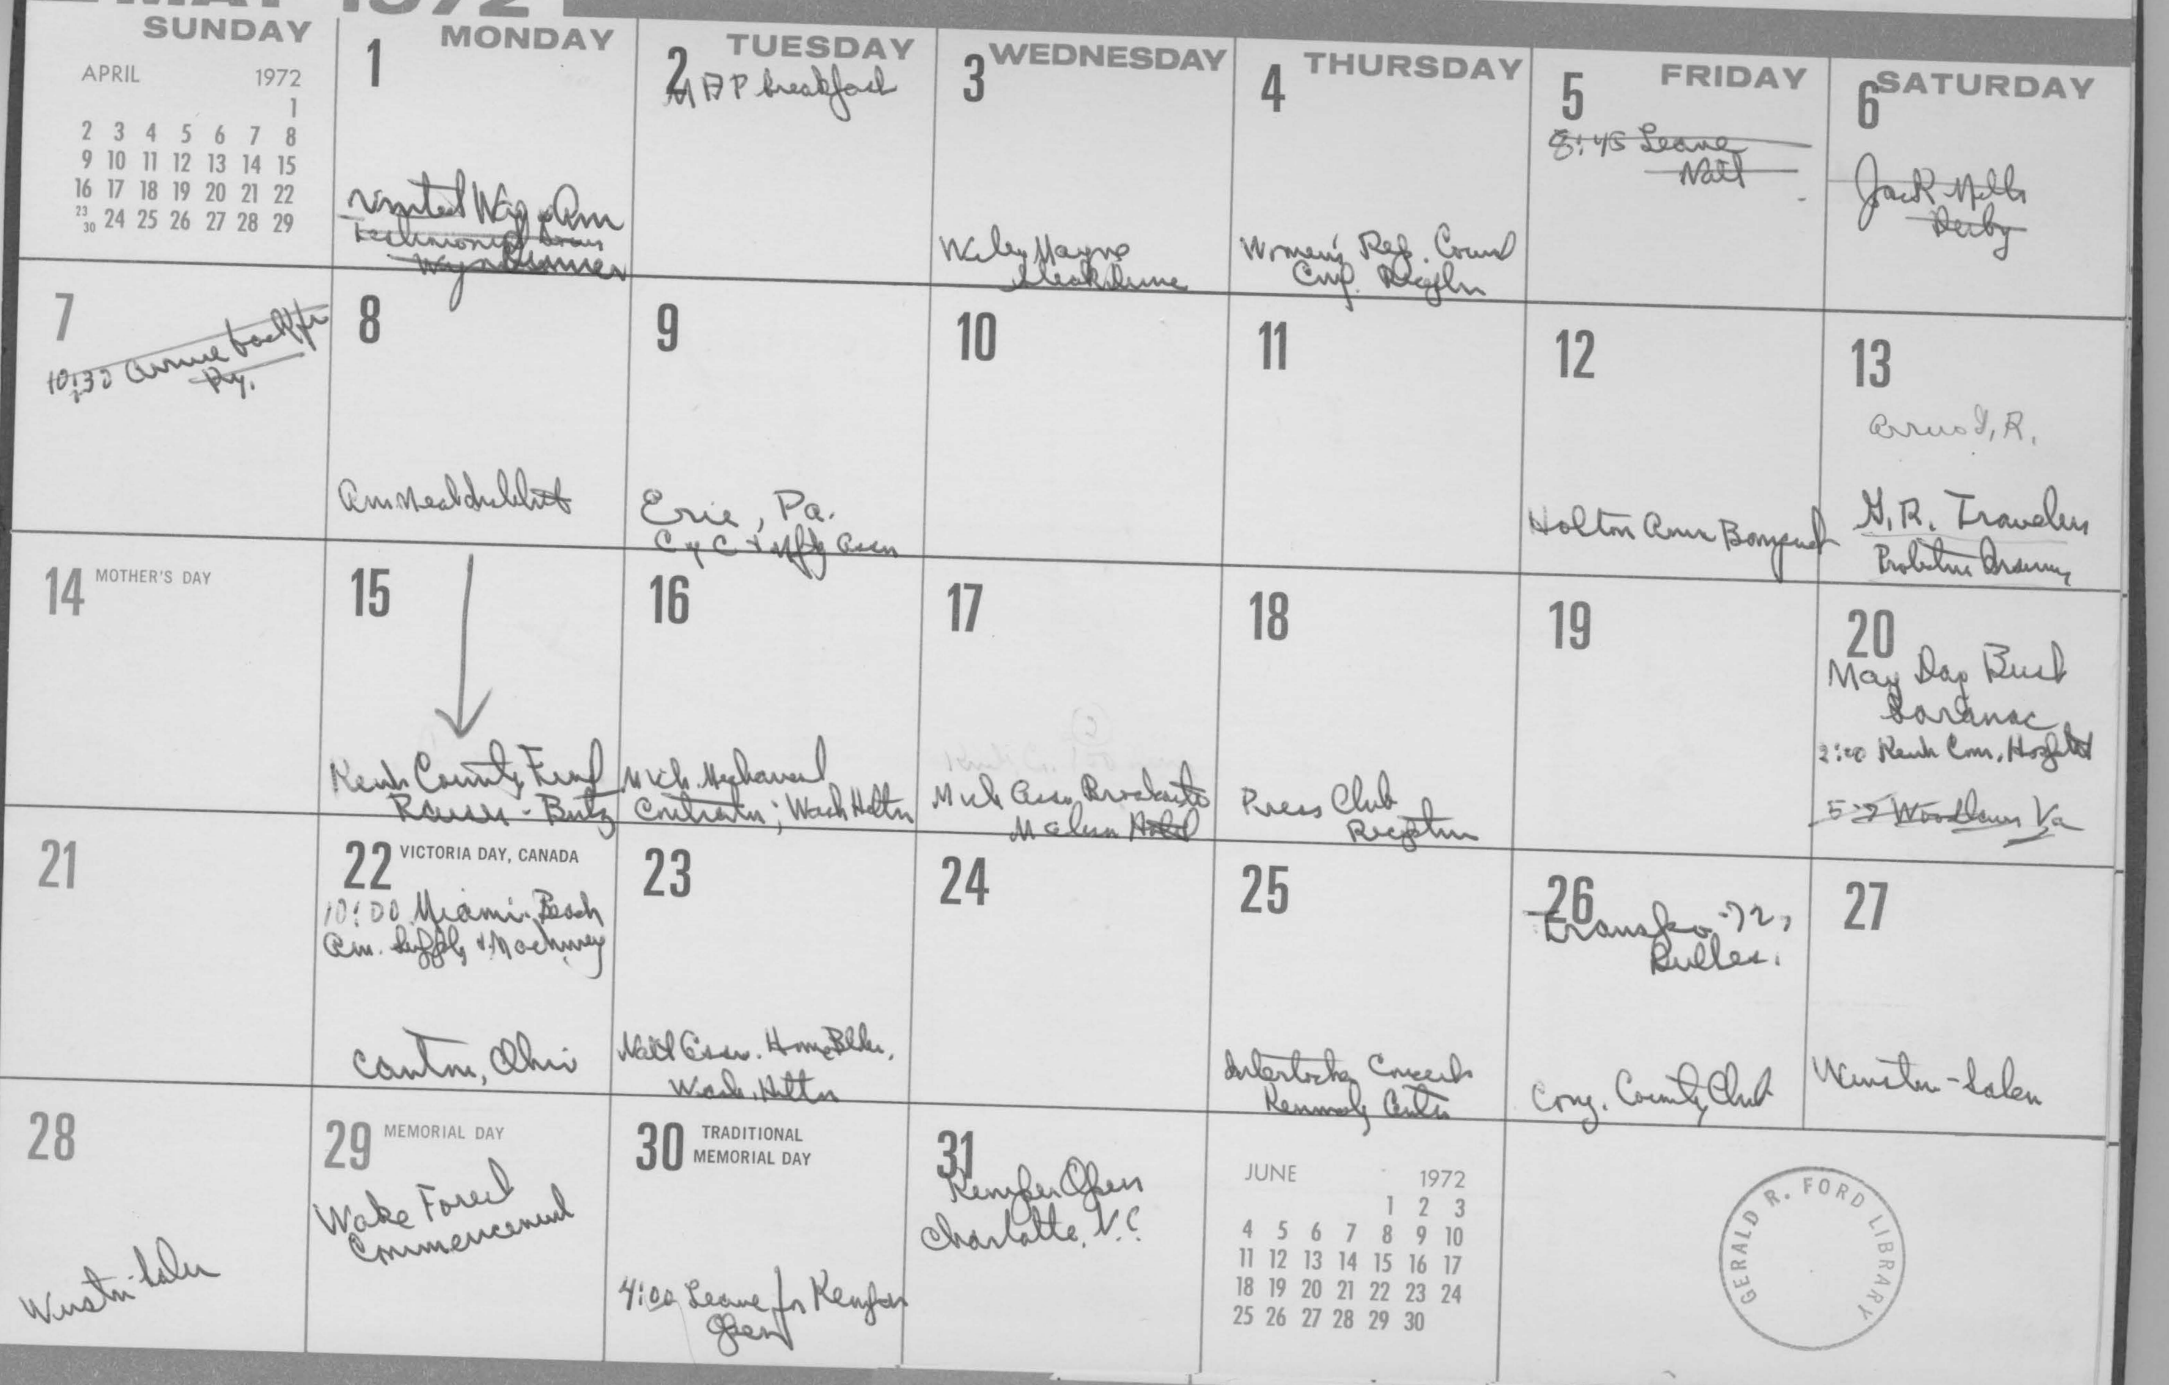 MAY 1972
SUNDAY MONDAY TUESDAY WEDNESDAY THURSDAY FRIDAY SATURDAY
APRIL 1972
1
2 3 4 5 6 7 8
9 10 11 12 13 14 15
16 17 18 19 20 21 22
23 30 24 25 26 27 28 29
1
2
breakfast
3
Wiley Mayne
4
Women's Rep.
5
8:45 Leave
Natl
6
Jack Mills
Derby
7
10:30 arrive back fr
Ky.
8
9
Erie, Pa.
C of C & Mfg Assn
10
11
12
Holton Ann Banquet
13
G.R. Travelers
14 MOTHER'S DAY
15
Kent County Fund
Raiser - Butz
16
Mich.
Wash Hilton
17
Mich Assn
18
Press Club
Reception
19
20
May Day
Saranac
2:00 Kent Com. Hospital
Woodlawn Va
21
22 VICTORIA DAY, CANADA
10:00 Miami Beach
Am. Supply & Machinery
Canton, Ohio
23
Natl Assn. Home Bldrs.
Wash. Hilton
24
25
Interlochen Concert
Kennedy Center
26
Transpo-72,
Dulles.
Cong. Country Club
27
Winston-Salem
28
Winston-Salem
29 MEMORIAL DAY
Wake Forest
Commencement
30 TRADITIONAL
MEMORIAL DAY
4:00 Leave for Kemper
Open
31
Kemper Open
Charlotte, N.C.
JUNE 1972
1 2 3
4 5 6 7 8 9 10
11 12 13 14 15 16 17
18 19 20 21 22 23 24
25 26 27 28 29 30
GERALD R. FORD LIBRARY